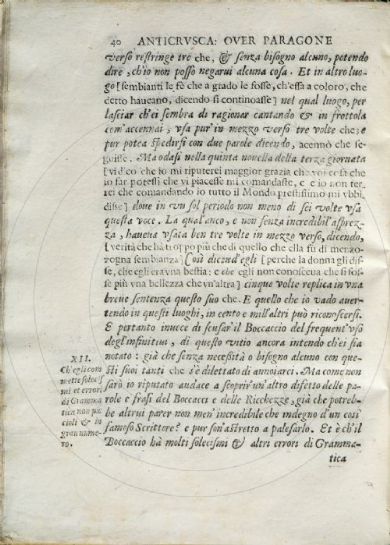 40 ANTICRVSCA: OVER PARAGONE
verso restringe tre che, & senza bisogno alcuno, potendo
dire, ch'io non posso negarui alcuna cosa. Et in altro luo-
go [sembianti le fè che a grado le fosse, ch'essa a coloro, che
detto haueano, dicendo si continoasse] nel qual luogo, per
lasciar ch'ei sembra di ragionar cantando & in frottola
com'accennai; vsa pur in mezzo versi tre volte che; e
pur potea spedirsi con due parole dicendo, accennò che se-
guisse. Ma odasi nella quinta nouella della terza giornata
[vi dico che io mi riputerei maggior grazia che voi cosa che
io far potessi che vi piacesse mi comandaste, e che io non ter-
rei che comandando io tutto il Mondo prestissimo mi vbbi-
disse] doue in vn sol periodo non meno di sei volte vsa
questa voce. La qual'anco, e non senza incredibil'asprez-
za, haueua vsata ben tre volte in mezzo verso, dicendo,
[verità che ha troppo più che di quello che ella fu di menzo-
rogna sembianza] Così dicend'egli [perche la donna gli dis-
se, che egli era vna bestia: e che egli non conosceua che si fos-
se più vna bellezza che vn'altra] cinque volte replica in vna
breue sentenza questo suo che. E quello che io vado auer-
tendo in questi luoghi, in cento e mill'altri può riconoscersi.
E pertanto inuece di scusar'il Boccaccio del frequent'vso
degl'infinitiui, di questo vitio ancora intendo ch'ei sia
notato: già che senza necessità o bisogno alcuno con que-
sti suoi tanti che s'è dilettato di annoiarci. Ma come non
sarò io riputato audace a scoprir'un'altro difetto delle pa-
role e frasi del Boccacci e delle Ricchezze, già che potreb-
be altrui parer non men'incredibile che indegno d'un così
famoso Scrittore? e pur son'astretto a palesarlo. Et è ch'il
Boccaccio hà molti solecismi & altri errori di Gramma-
tica
XII.
Ch'egli com
mette solecis
mi et errori
di Gramma
tica non pic
cioli & in
gran nume-
ro.